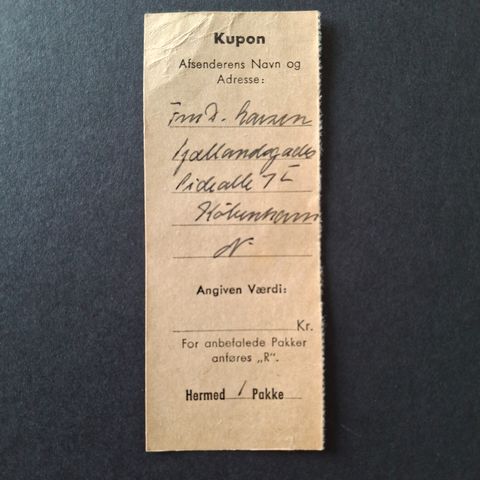 Kupon
Afsenderens Navn og
Adresse:
Larsen
Sjællandsgades
Sidealle 7
København
N
Angiven Værdi:
Kr.
For anbefalede Pakker
anføres „R“.
Hermed 1 Pakke